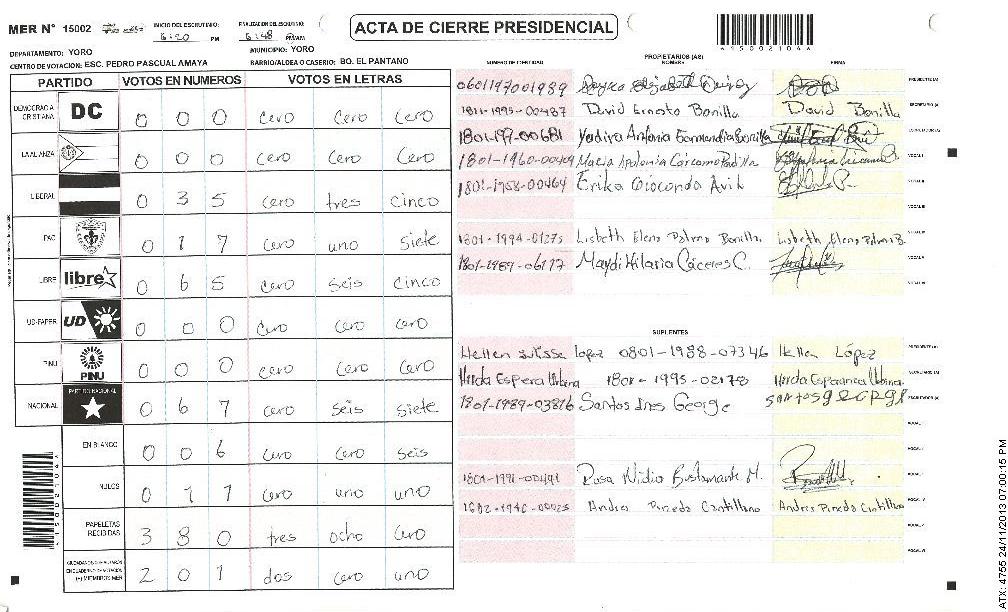 MER N° 15002
INICIO DEL ESCRUTINIO:
6:20 PM
FINALIZACIÓN DEL ESCRUTINIO:
6:48 PM
ACTA DE CIERRE PRESIDENCIAL
A15002104A
DEPARTAMENTO: YORO
MUNICIPIO: YORO
CENTRO DE VOTACION: ESC. PEDRO PASCUAL AMAYA
BARRIO/ALDEA O CASERIO: BO. EL PANTANO
PARTIDO VOTOS EN NUMEROS VOTOS EN LETRAS
DEMOCRACIA CRISTIANA DC 0 0 0 cero cero cero
LA ALIANZA 0 0 0 cero cero cero
LIBERAL 0 3 5 cero tres cinco
PAC 0 1 7 cero uno siete
LIBRE libre 0 6 5 cero seis cinco
UD-FAPER UD 0 0 0 cero cero cero
PINU PINU 0 0 0 cero cero cero
NACIONAL PARTIDO NACIONAL 0 6 7 cero seis siete
EN BLANCO 0 0 6 cero cero seis
NULOS 0 1 1 cero uno uno
PAPELETAS RECIBIDAS 3 8 0 tres ocho cero
(+) MIEMBROS MER 2 0 1 dos cero uno
NÚMERO DE IDENTIDAD
PROPIETARIOS (AS)
NOMBRE
FIRMA
0601197001989 PRESIDENTE (A)
1811-1995-00487 David Ernesto Bonilla David Bonilla SECRETARIO (A)
Yadira Antonia Bonilla ESCRUTADOR (A)
1801-1960-00409 Maria Apolonia Cárcamo Padilla VOCAL I
1801-1958-00464 Erika Gioconda VOCAL II
VOCAL III
1801-1994-01275 Lisbeth Elena Palma Bonilla. Lisbeth Elena Palma B. VOCAL IV
1801-1989-06117 Maydi Hilaria Cáceres C. VOCAL V
VOCAL VI
SUPLENTES
Hellen lopez 0801-1988-07346 Hellen López PRESIDENTE (A)
1801-1995-02178 SECRETARIO (A)
1801-1989-03816 Santos Ines George santos george ESCRUTADOR (A)
VOCAL I
VOCAL II
1801-1991-00491 Rosa Nidia Bustamante M. VOCAL III
Andres Pineda Cantillano Andres Pineda Cantillano VOCAL IV
VOCAL V
VOCAL VI
A15002104A
ATX: 4755 24/11/2013 07:00:15 PM